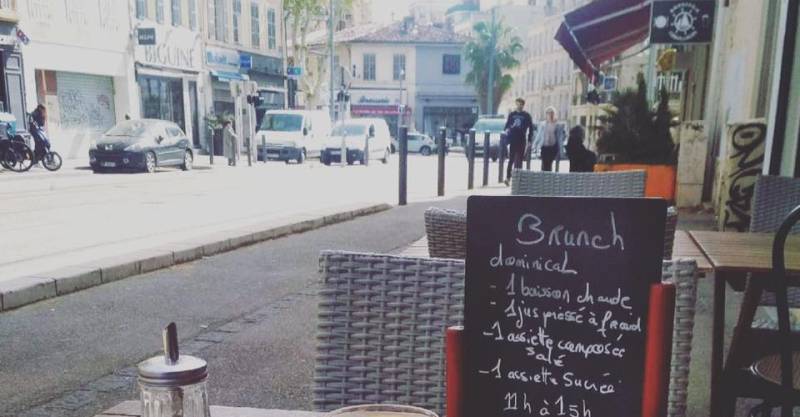 BIGUINE
Brunch
dominical
- 1 boisson chaude
- 1 jus pressé à froid
- 1 assiette composée
salé
- 1 assiette sucrée
11h à 15h